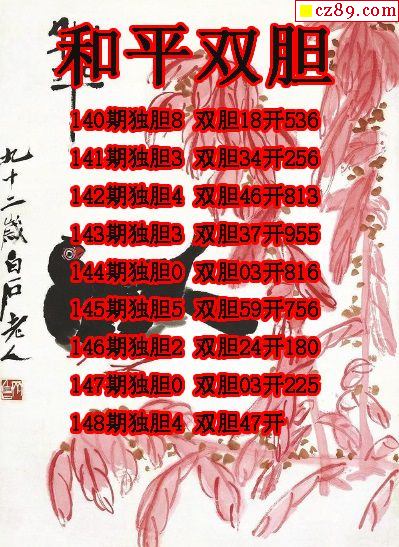 cz89.com
和平双胆
140期独胆8 双胆18开536
141期独胆3 双胆34开256
142期独胆4 双胆46开813
143期独胆3 双胆37开955
144期独胆0 双胆03开816
145期独胆5 双胆59开756
146期独胆2 双胆24开180
147期独胆0 双胆03开225
148期独胆4 双胆47开
九十二歲白石老人